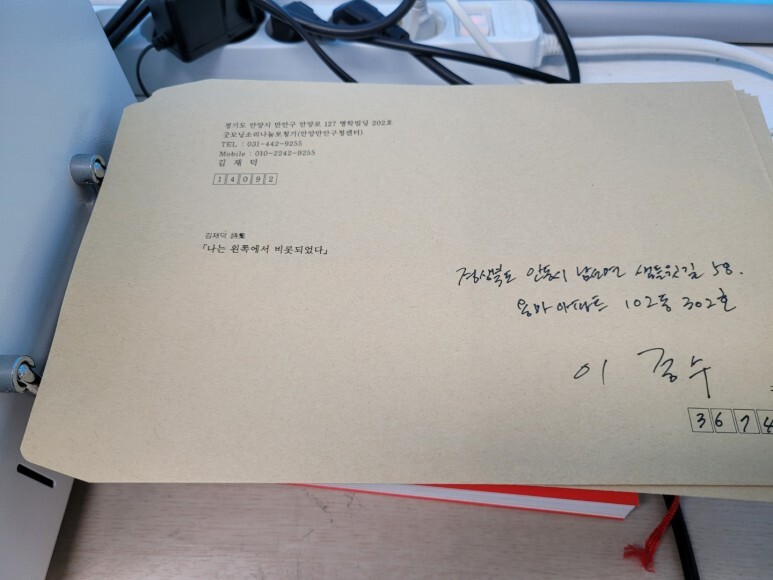 경기도 안양시 만안구 안양로 127 명학빌딩 202호
굿모닝소리나눔보청기(안양만안구청센터)
TEL : 031-442-9255
Mobile : 010-2242-9255
김 재 덕
14092
김재덕 詩集
「나는 왼쪽에서 비롯되었다」
경상북도 안동시 남선면 샘들윗길 58.
용마아파트 102동 302호
이 경 수
3674